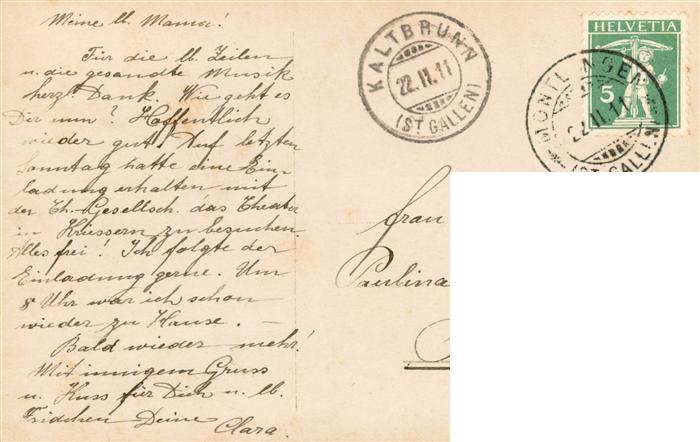 Meine lb. Mama!
Für die lb. Zeilen
u. die gesandte Musik
herzl. Dank. Wie geht es
Dir nun? Hoffentlich
wieder gut! Auf letzten
Sonntag hatte eine Ein-
ladung erhalten mit
der Th.-Gesellsch. das Theater
in Krissern zu besuchen.
Alles frei! Ich folgte der
Einladung gerne. Um
8 Uhr war ich schon
wieder zu Hause. —
Bald wieder mehr!
Mit innigem Gruss
u. Kuss für Dich u. lb.
Fridchen Deine
Clara.
KALTBRUNN
22.II.11
(ST. GALLEN)
HELVETIA
5
MONTLINGEN
22.II.11
(ST. GALLEN)
Frau
Paulina